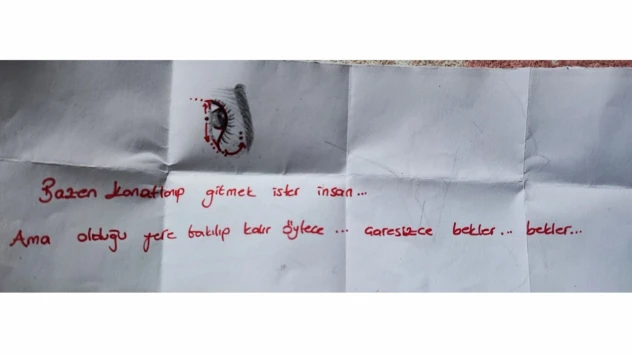 Bazen kanatlanıp gitmek ister insan...
Ama olduğu yere takılıp kalır öylece... çaresizce bekler... bekler...